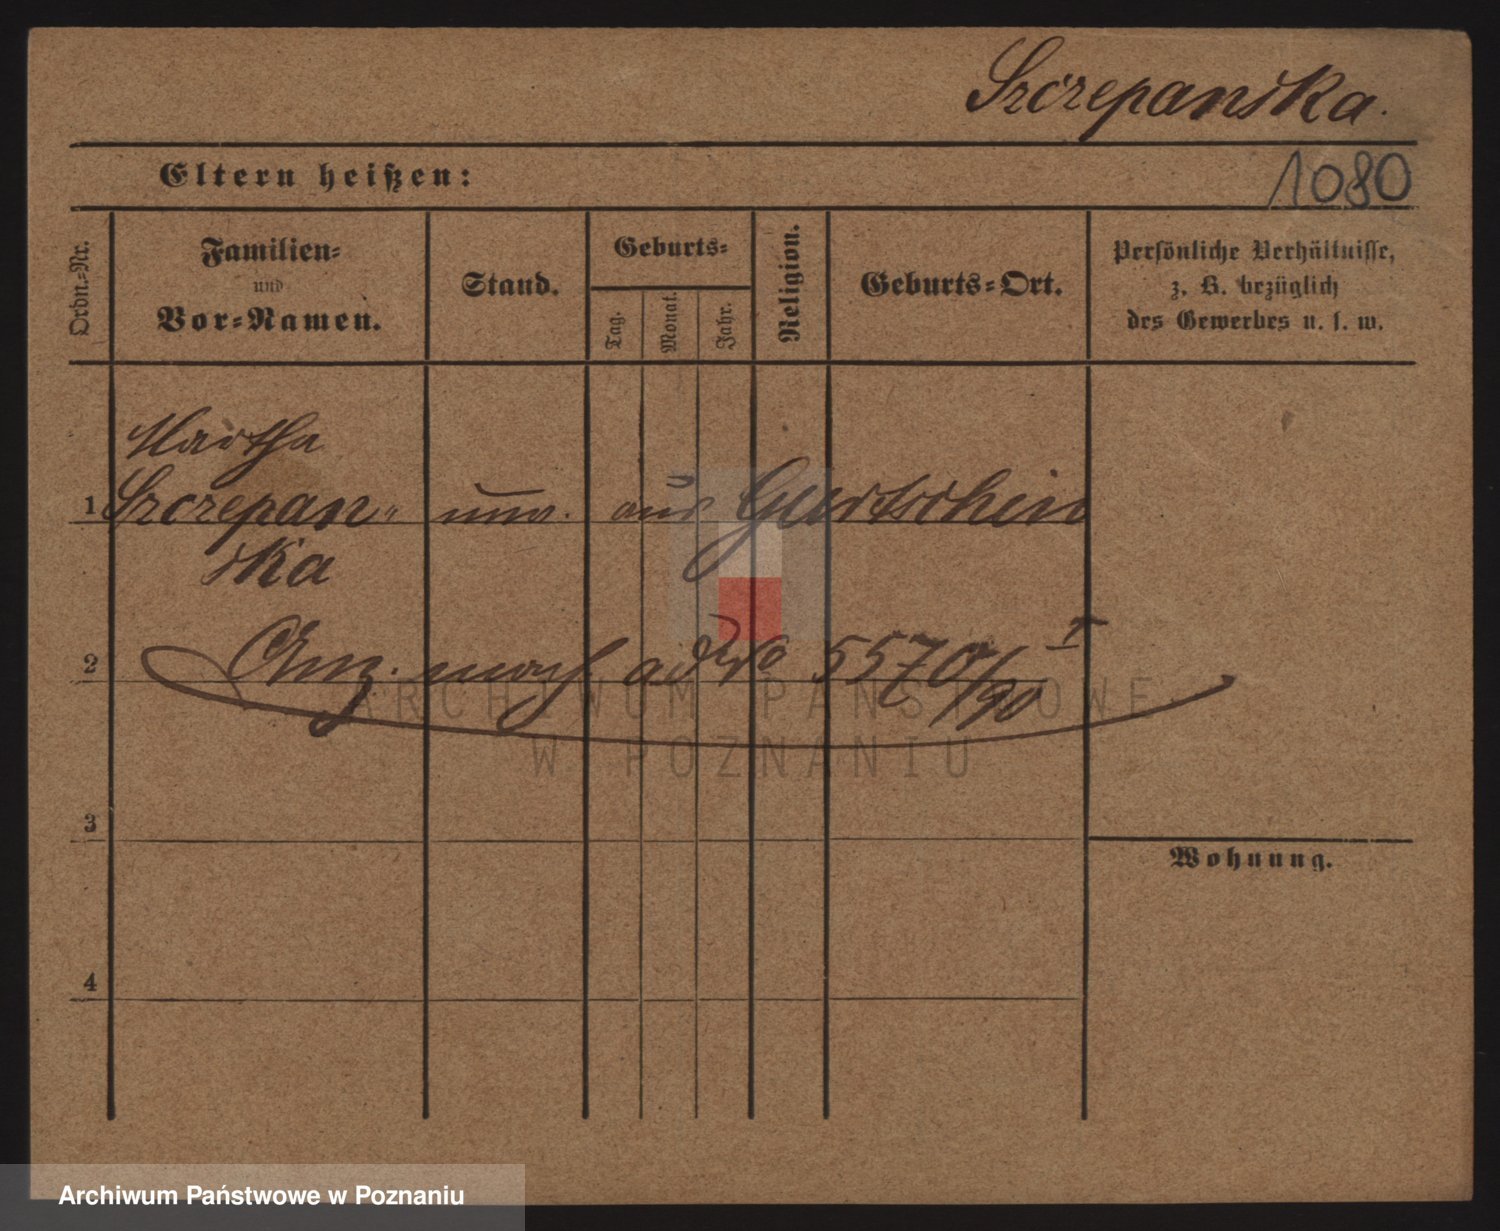 Szczepanska.
Eltern heißen:
1080
Ordn.=Nr.
Familien=
und
Vor=Namen.
Stand.
Geburts=
Tag.
Monat.
Jahr.
Religion.
Geburts=Ort.
Persönliche Verhältnisse,
z. B. bezüglich
des Gewerbes u. s. w.
Martha
1 Szczepan= unv. aus Gurtschin
ska
2 Anz. nach ad No 5570/90 I
ARCHIWUM PAŃSTWOWE
W POZNANIU
3
Wohnung.
4
Archiwum Państwowe w Poznaniu